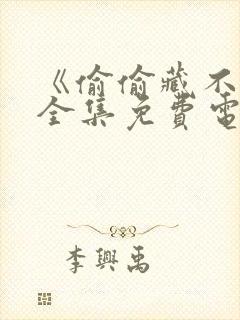 《偷偷藏不
全集免費電
李興禹